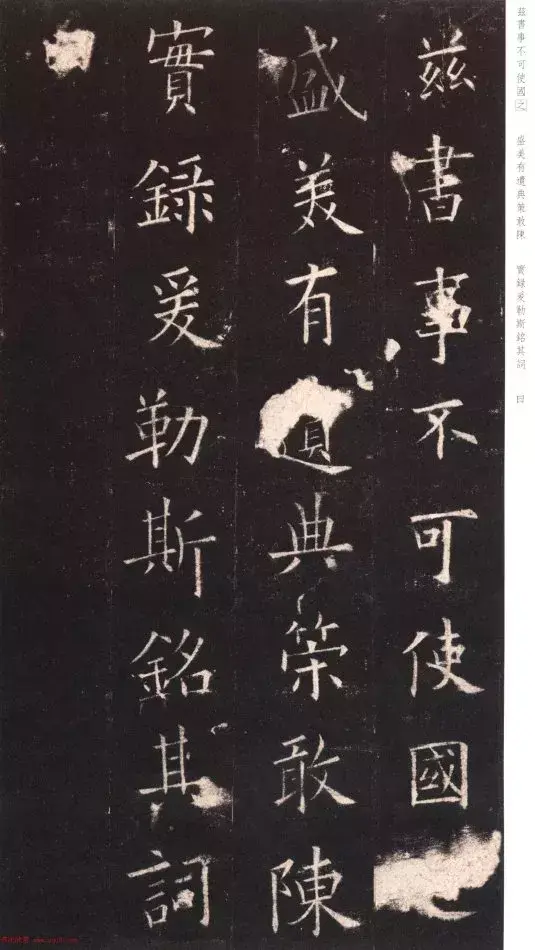 茲書事不可使國之
盛美有遺典策敢陳
實錄爰勒斯銘其詞
曰
茲書事不可使國之 盛美有遺典策敢陳 實録爰勒斯銘其詞 曰